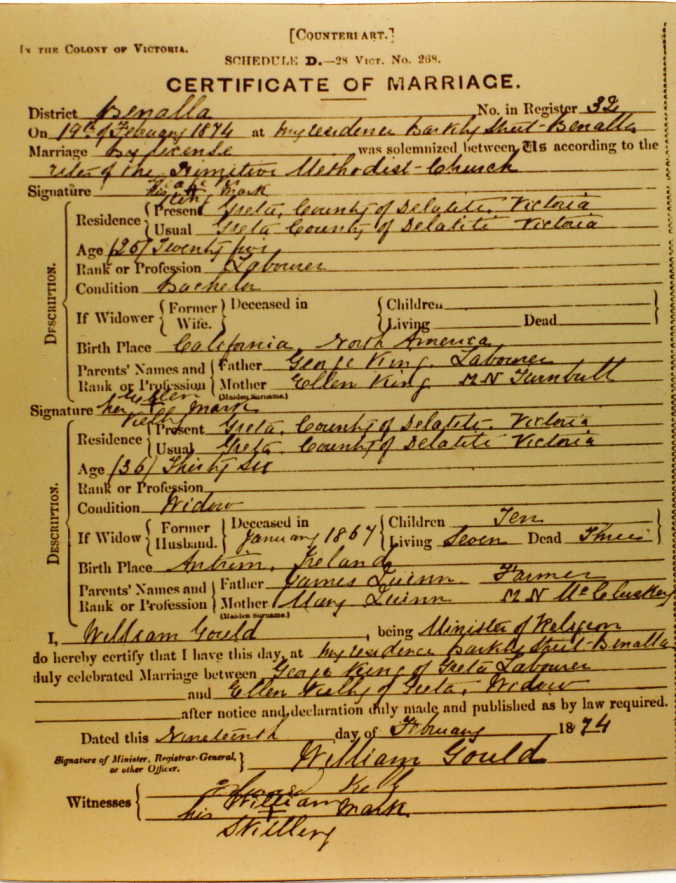 [COUNTERPART.]
IN THE COLONY OF VICTORIA.
SCHEDULE D.—28 VICT. No. 268.
CERTIFICATE OF MARRIAGE.
District Benalla No. in Register 32
On 19th of February 1874 at my residence Barkly Street Benalla
Marriage by license was solemnized between Us according to the
rites of the Primitive Methodist Church
Signature his mark
King
Residence { Present Greta, County of Delatite, Victoria
Usual Greta County of Delatite Victoria
Age (25) Twenty five
Rank or Profession Labourer
Condition Bachelor
If Widower { Former Wife. } Deceased in { Children
Living Dead
Birth Place California, North America
Parents' Names and Rank or Profession { Father George King. Labourer
Mother Ellen King M N Turnbull
(Maiden Surname.)
DESCRIPTION.
Ellen
Signature her mark
Kelly
Residence { Present Greta, County of Delatite, Victoria
Usual Greta County of Delatite Victoria
Age (36) Thirty Six
Rank or Profession
Condition Widow
If Widow { Former Husband. } Deceased in January 1867 { Children Ten
Living Seven Dead Three
Birth Place Antrim, Ireland
Parents' Names and Rank or Profession { Father James Quinn Farmer
Mother Mary Quinn M N McCluskey
(Maiden Surname.)
DESCRIPTION.
I, William Gould, being Minister of Religion
do hereby certify that I have this day, at my residence Barkly Street Benalla
duly celebrated Marriage between George King of Greta Labourer
and Ellen Kelly of Greta, Widow
after notice and declaration duly made and published as by law required.
Dated this Nineteenth day of February 1874
Signature of Minister, Registrar-General, or other Officer. } William Gould
Witnesses { Kelly
William
his mark
Skillery